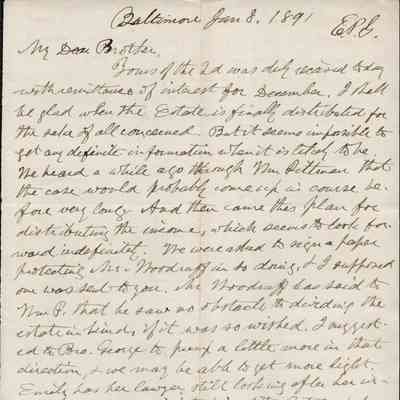 Baltimore Jan 8. 1891
E.P.G.
My Dear Brother,
Yours of the 2d was duly received today
with remittance of interest for December. I shall
be glad when the Estate is finally distributed for
the sake of all concerned. But it seems impossible to
get any definite information when it is likely to be.
We heard a while ago through Wm Pittman that
the case would probably come up in course be-
fore very long. And then came this plan for
distributing the income, which seems to look for-
ward indefinitely. We were asked to sign a paper
protesting Mr. Woodruff in so doing, & I supposed
one was sent to you. Mr Woodruff has said to
Wm P. that he saw no obstacle to dividing the
estate in kind, if it was so wished. I suggest-
ed to Bro. George to pump a little more in that
direction, & we may be able to get more light.
Emily has her lawyer still looking after her in-